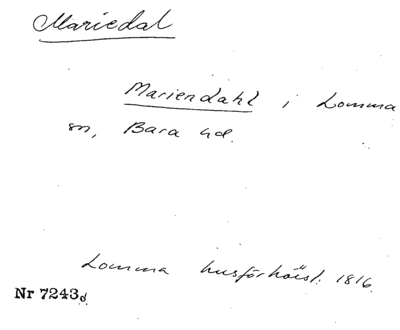 Mariedal
Mariendahl i Lomma
sn, Bara hd.
Lomma husförhörsl. 1816.
Nr 7243d